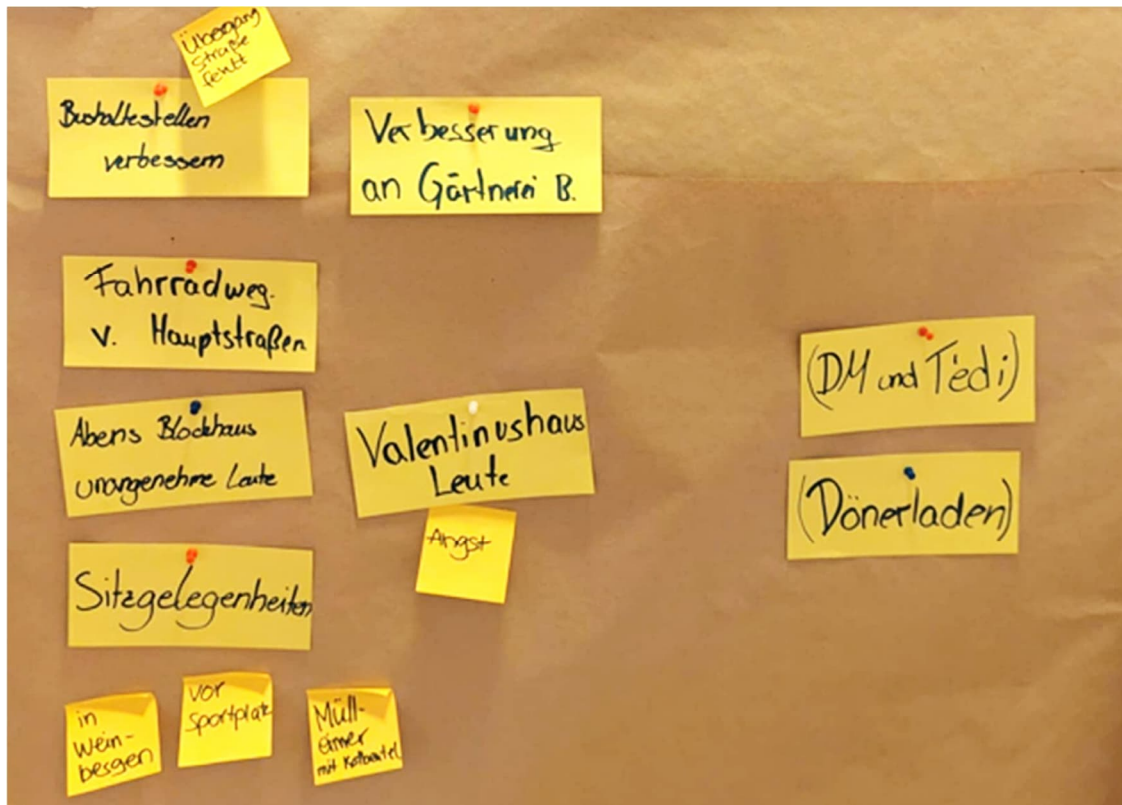 Übergang
Straße
fehlt
Bushaltestellen
verbessern
Verbesserung
an Gärtnerei B.
Fahrradweg.
v. Hauptstraßen
Abens Blockhaus
unangenehme Leute
Valentinushaus
Leute
Angst
Sitzgelegenheiten
in
Wein-
besgen
vor
Sportplatz
Müll-
eimer
mit Kotbeutel
(DM und Tedi)
(Dönerladen)